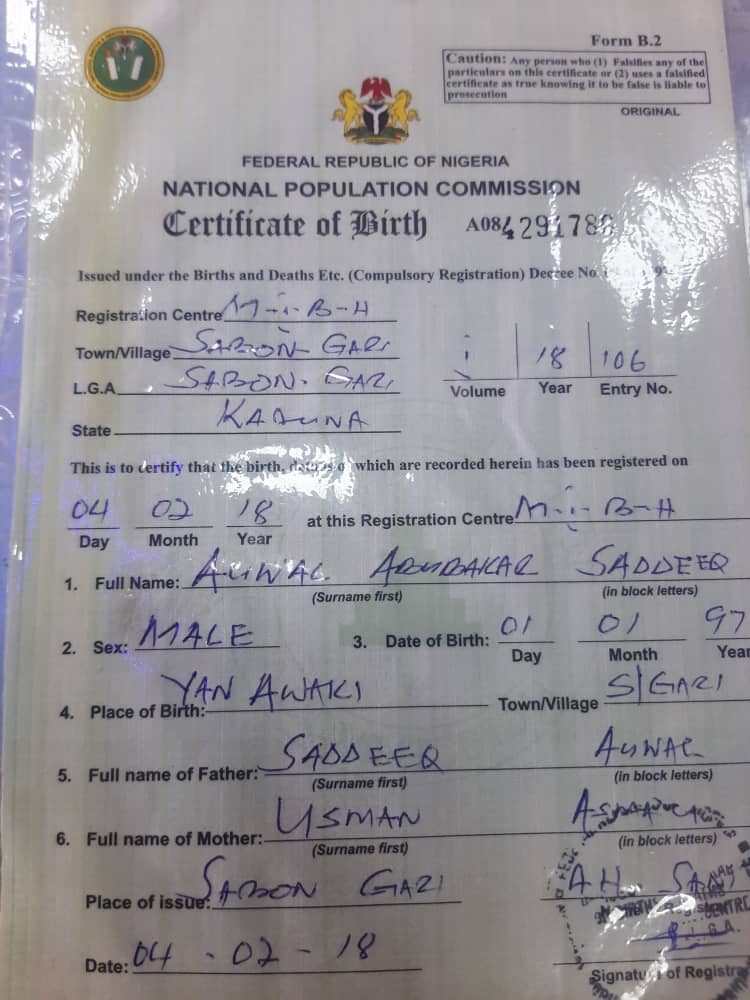 Form B.2
Caution: Any person who (1) Falsifies any of the
particulars on this certificate or (2) uses a falsified
certificate as true knowing it to be false is liable to
prosecution
ORIGINAL
FEDERAL REPUBLIC OF NIGERIA
NATIONAL POPULATION COMMISSION
Certificate of Birth A084291786
Issued under the Births and Deaths Etc. (Compulsory Registration) Decree No.
Registration Centre M-i-B-H
Town/Village SABON GARI
L.G.A. SABON. GARI
i 18 106
Volume Year Entry No.
State KADUNA
This is to certify that the birth, details of which are recorded herein has been registered on
04 02 18 at this Registration Centre M-i-B-H
Day Month Year
1. Full Name: AUWAL ABUBAKAR SADDEEQ
(Surname first) (in block letters)
2. Sex: MALE 3. Date of Birth: 01 01 97
Day Month Year
4. Place of Birth: YAN AWAKI Town/Village S/GARI
5. Full name of Father: SADDEEQ AUWAL
(Surname first) (in block letters)
6. Full name of Mother: USMAN
(Surname first) (in block letters)
Place of issue: SABON GARI AH. SANI
Date: 04-02-18
Signature of Registrar